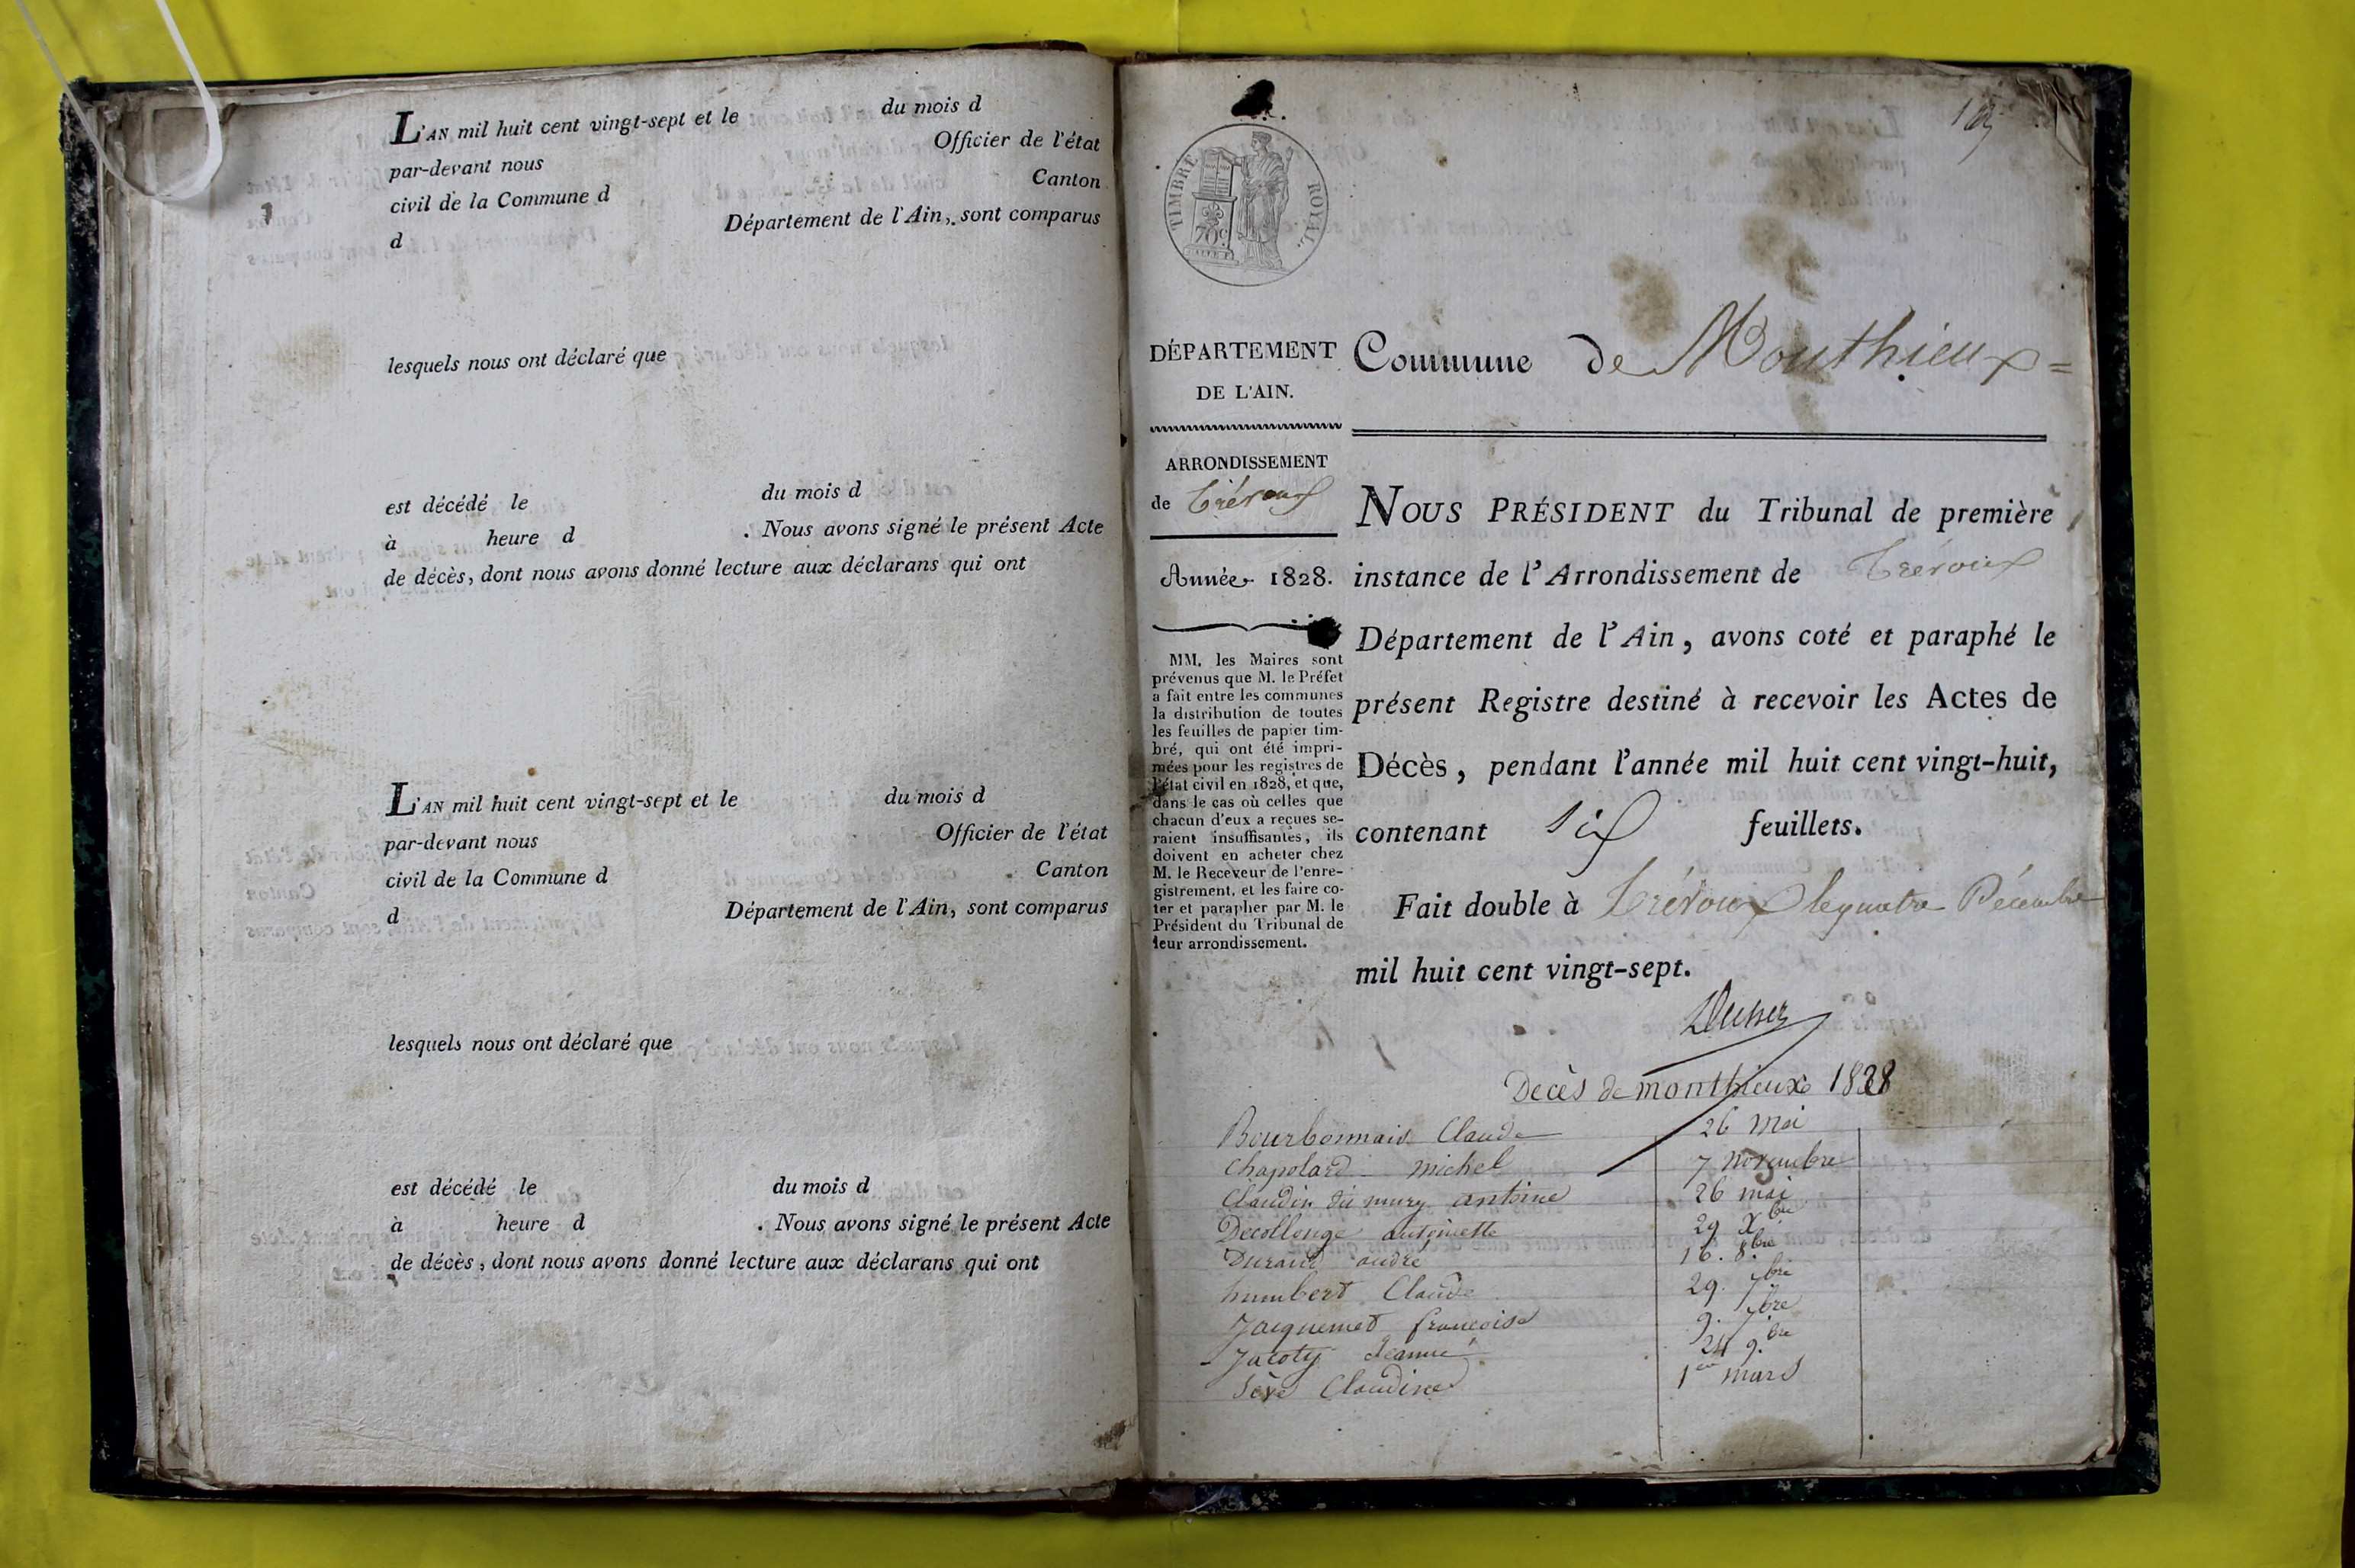 L'AN mil huit cent vingt-sept et le du mois d
par-devant nous Officier de l'état
civil de la Commune d Canton
d Département de l'Ain, sont comparus
lesquels nous ont déclaré que
est décédé le du mois d
à heure d . Nous avons signé le présent Acte
de décès, dont nous avons donné lecture aux déclarans qui ont
L'AN mil huit cent vingt-sept et le du mois d
par-devant nous Officier de l'état
civil de la Commune d Canton
d Département de l'Ain, sont comparus
lesquels nous ont déclaré que
est décédé le du mois d
à heure d . Nous avons signé le présent Acte
de décès, dont nous avons donné lecture aux déclarans qui ont
TIMBRE ROYAL.
70c
DÉPARTEMENT
DE L'AIN.
ARRONDISSEMENT
de Trévoux
Année 1828.
MM. les Maires sont
prévenus que M. le Préfet
a fait entre les communes
la distribution de toutes
les feuilles de papier tim-
bré, qui ont été impri-
mées pour les registres de
l'état civil en 1828, et que,
dans le cas où celles que
chacun d'eux a reçues se-
raient insuffisantes, ils
doivent en acheter chez
M. le Receveur de l'enre-
gistrement, et les faire co-
ter et parapher par M. le
Président du Tribunal de
leur arrondissement.
Commune de Monthieux =
NOUS PRÉSIDENT du Tribunal de première
instance de l'Arrondissement de Trévoux
Département de l'Ain, avons coté et paraphé le
présent Registre destiné à recevoir les Actes de
Décès, pendant l'année mil huit cent vingt-huit,
contenant six feuillets.
Fait double à Trévoux le quatre Décembre
mil huit cent vingt-sept.
Décès de monthieux 1828
Bourbonnais Claude 26 mai
Chapolard michel 7 novembre
Claudin du mury antoine 26 mai
Decollonge antoinette 29 Xbre
Durand andré 16. 8.bre
humbert Claude 29. 7bre
Jacquemet françoise 9. 7bre
Jacoty Jeanne 24 9.bre
Sève Claudine 1er mars